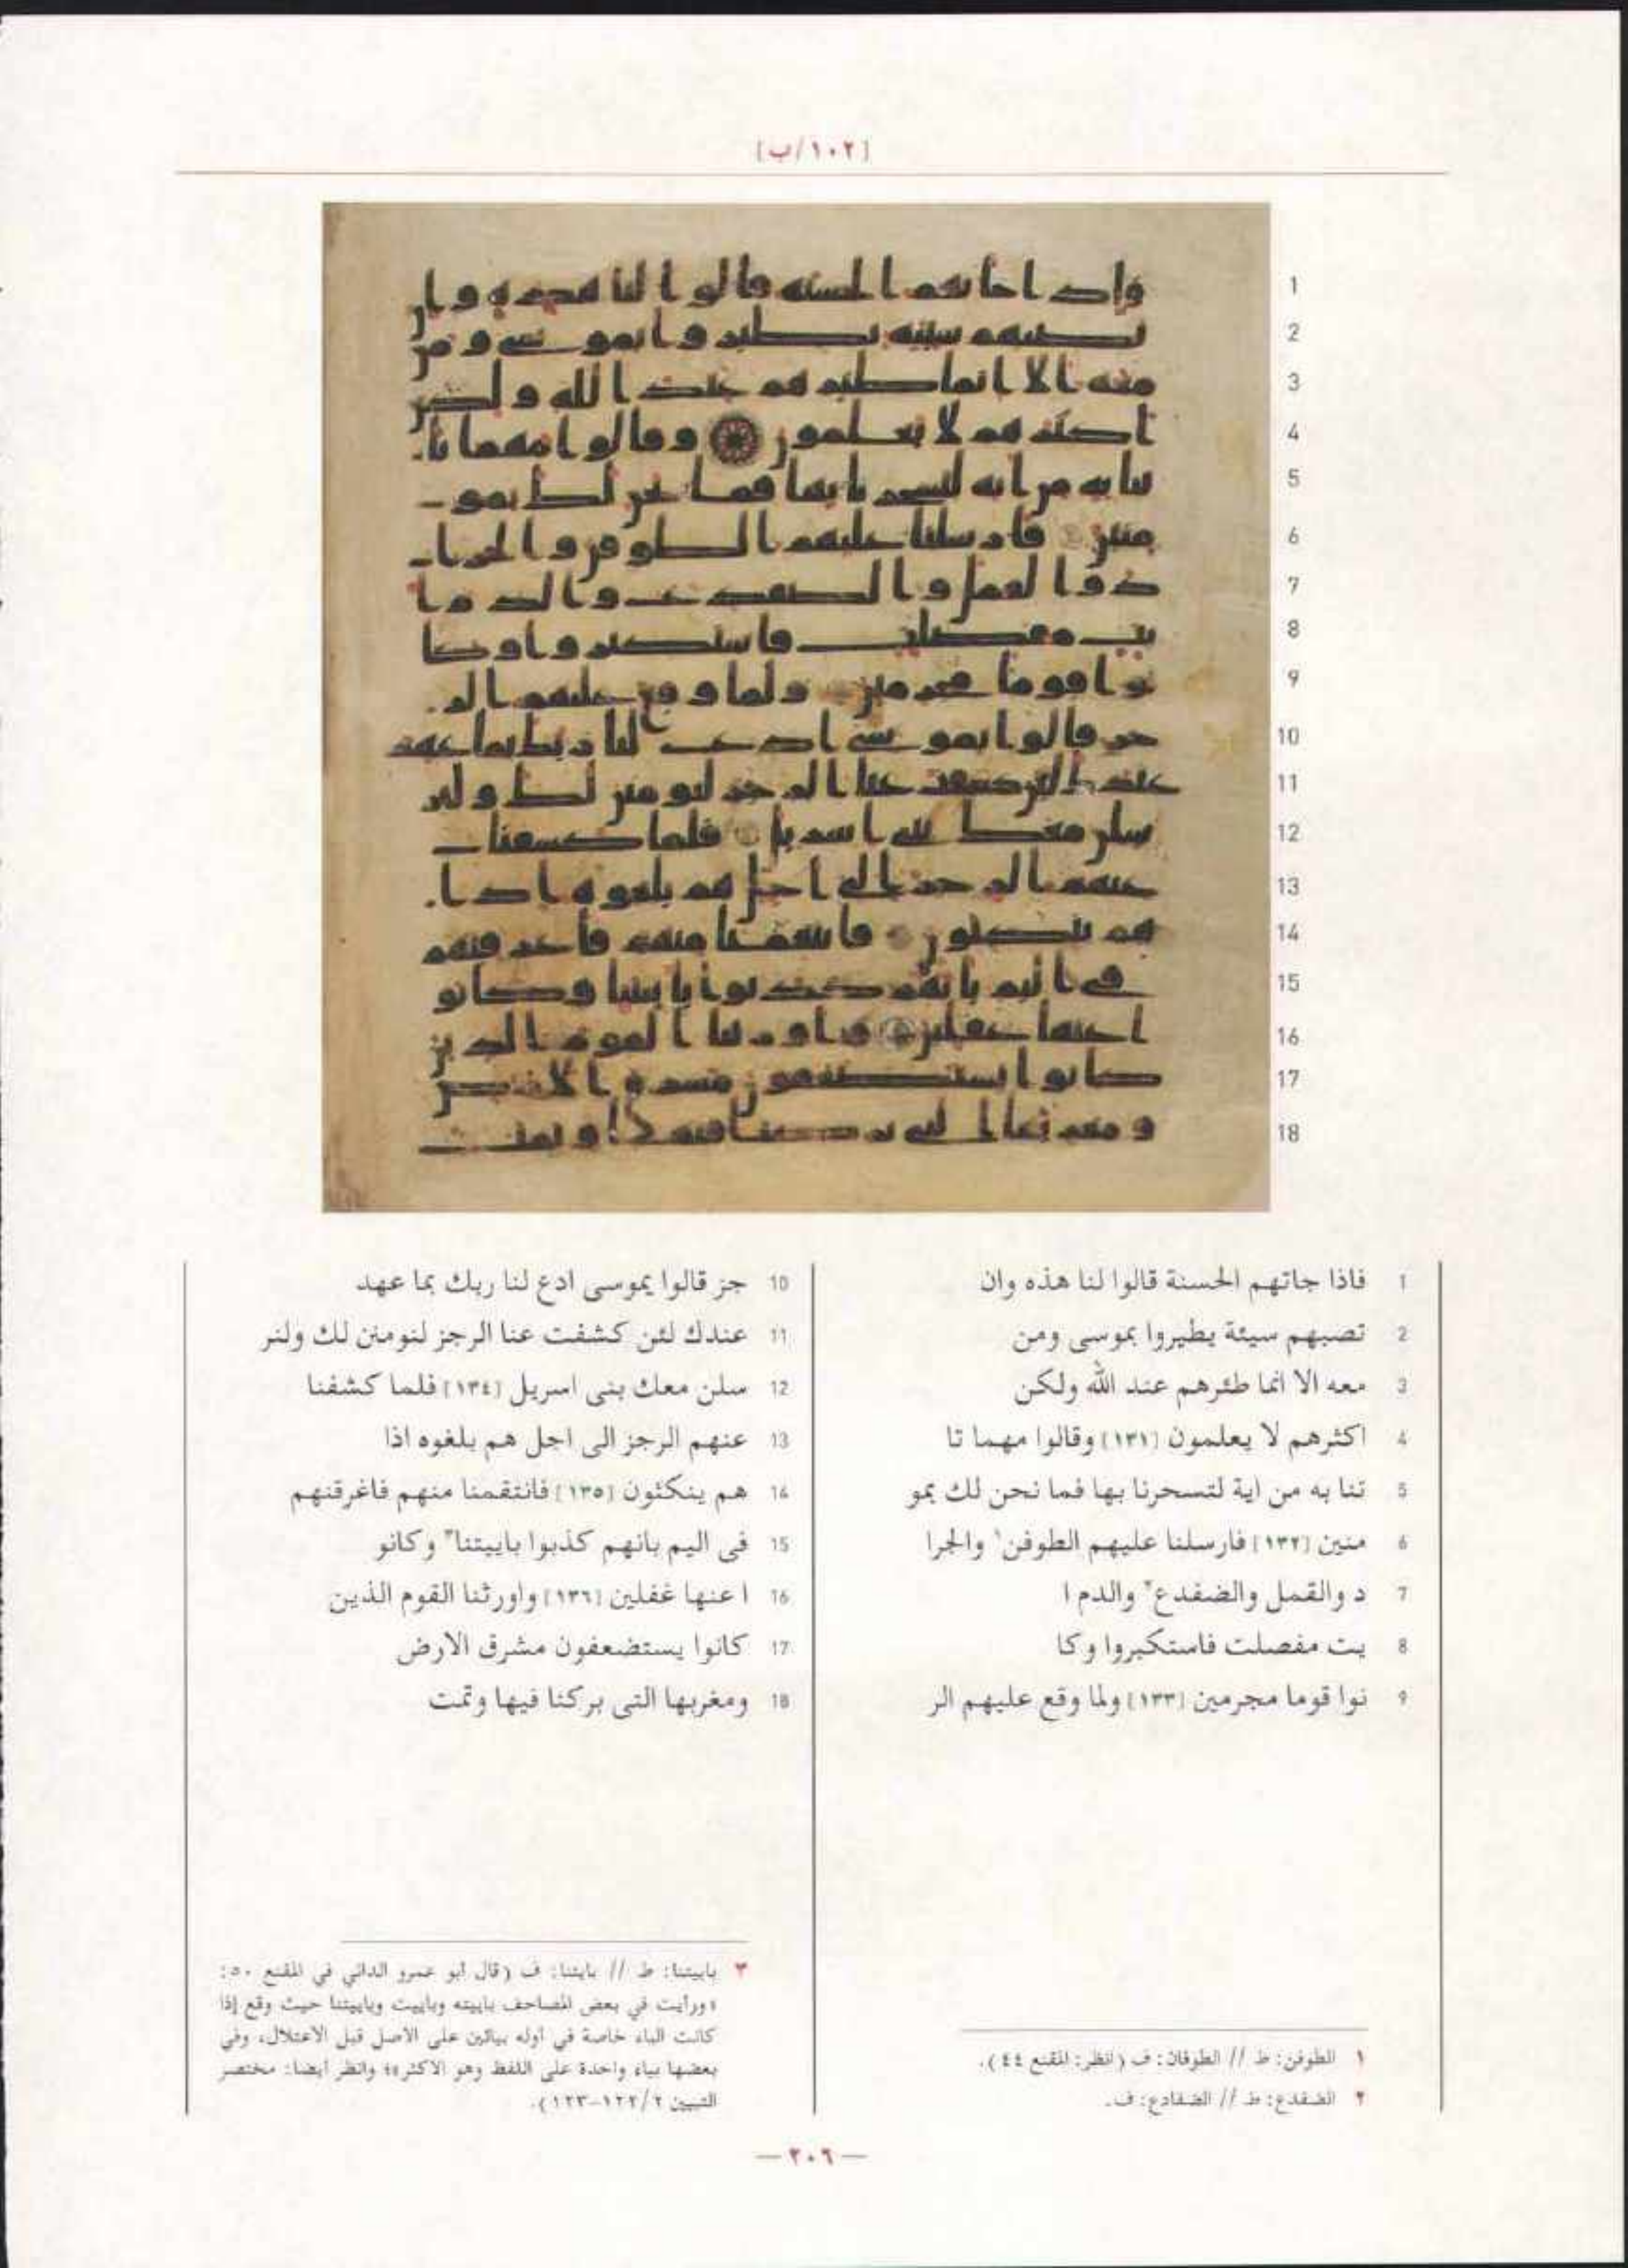 [١٠٢/ب]
1 فاذا جاتهم الحسنة قالوا لنا هذه وان
2 تصبهم سيئة يطيروا بموسى ومن
3 معه الا انما طئرهم عند الله ولكن
4 اكثرهم لا يعلمون [١٣١] وقالوا مهما تا
5 تنا به من اية لتسحرنا بها فما نحن لك بمو
6 منين [١٣٢] فارسلنا عليهم الطوفن١ والجرا
7 د والقمل والضفدع٢ والدم ا
8 يت مفصلت فاستكبروا وكا
9 نوا قوما مجرمين [١٣٣] ولما وقع عليهم الر
10 جز قالوا يموسى ادع لنا ربك بما عهد
11 عندك لئن كشفت عنا الرجز لنومنن لك ولنر
12 سلن معك بنى اسريل [١٣٤] فلما كشفنا
13 عنهم الرجز الى اجل هم بلغوه اذا
14 هم ينكثون [١٣٥] فانتقمنا منهم فاغرقنهم
15 فى اليم بانهم كذبوا باييتنا٣ وكانو
16 ا عنها غفلين [١٣٦] واورثنا القوم الذين
17 كانوا يستضعفون مشرق الارض
18 ومغربها التى بركنا فيها وتمت
١ الطوفن: ط // الطوفان: ف (انظر: المقنع ٤٤).
٢ الضفدع: ط // الضفادع: ف.
٣ باييتنا: ط // بايتنا: ف (قال أبو عمرو الداني في المقنع ٥٠:
«ورأيت في بعض المصاحف باييته وباييت وباييتنا حيث وقع إذا
كانت الباء خاصة في أوله بيائين على الأصل قبل الاعتلال، وفي
بعضها بياء واحدة على اللفظ وهو الأكثر»؛ وانظر أيضا: مختصر
التبيين ٢/١٢٢-١٢٣).
— ٢٠٦ —